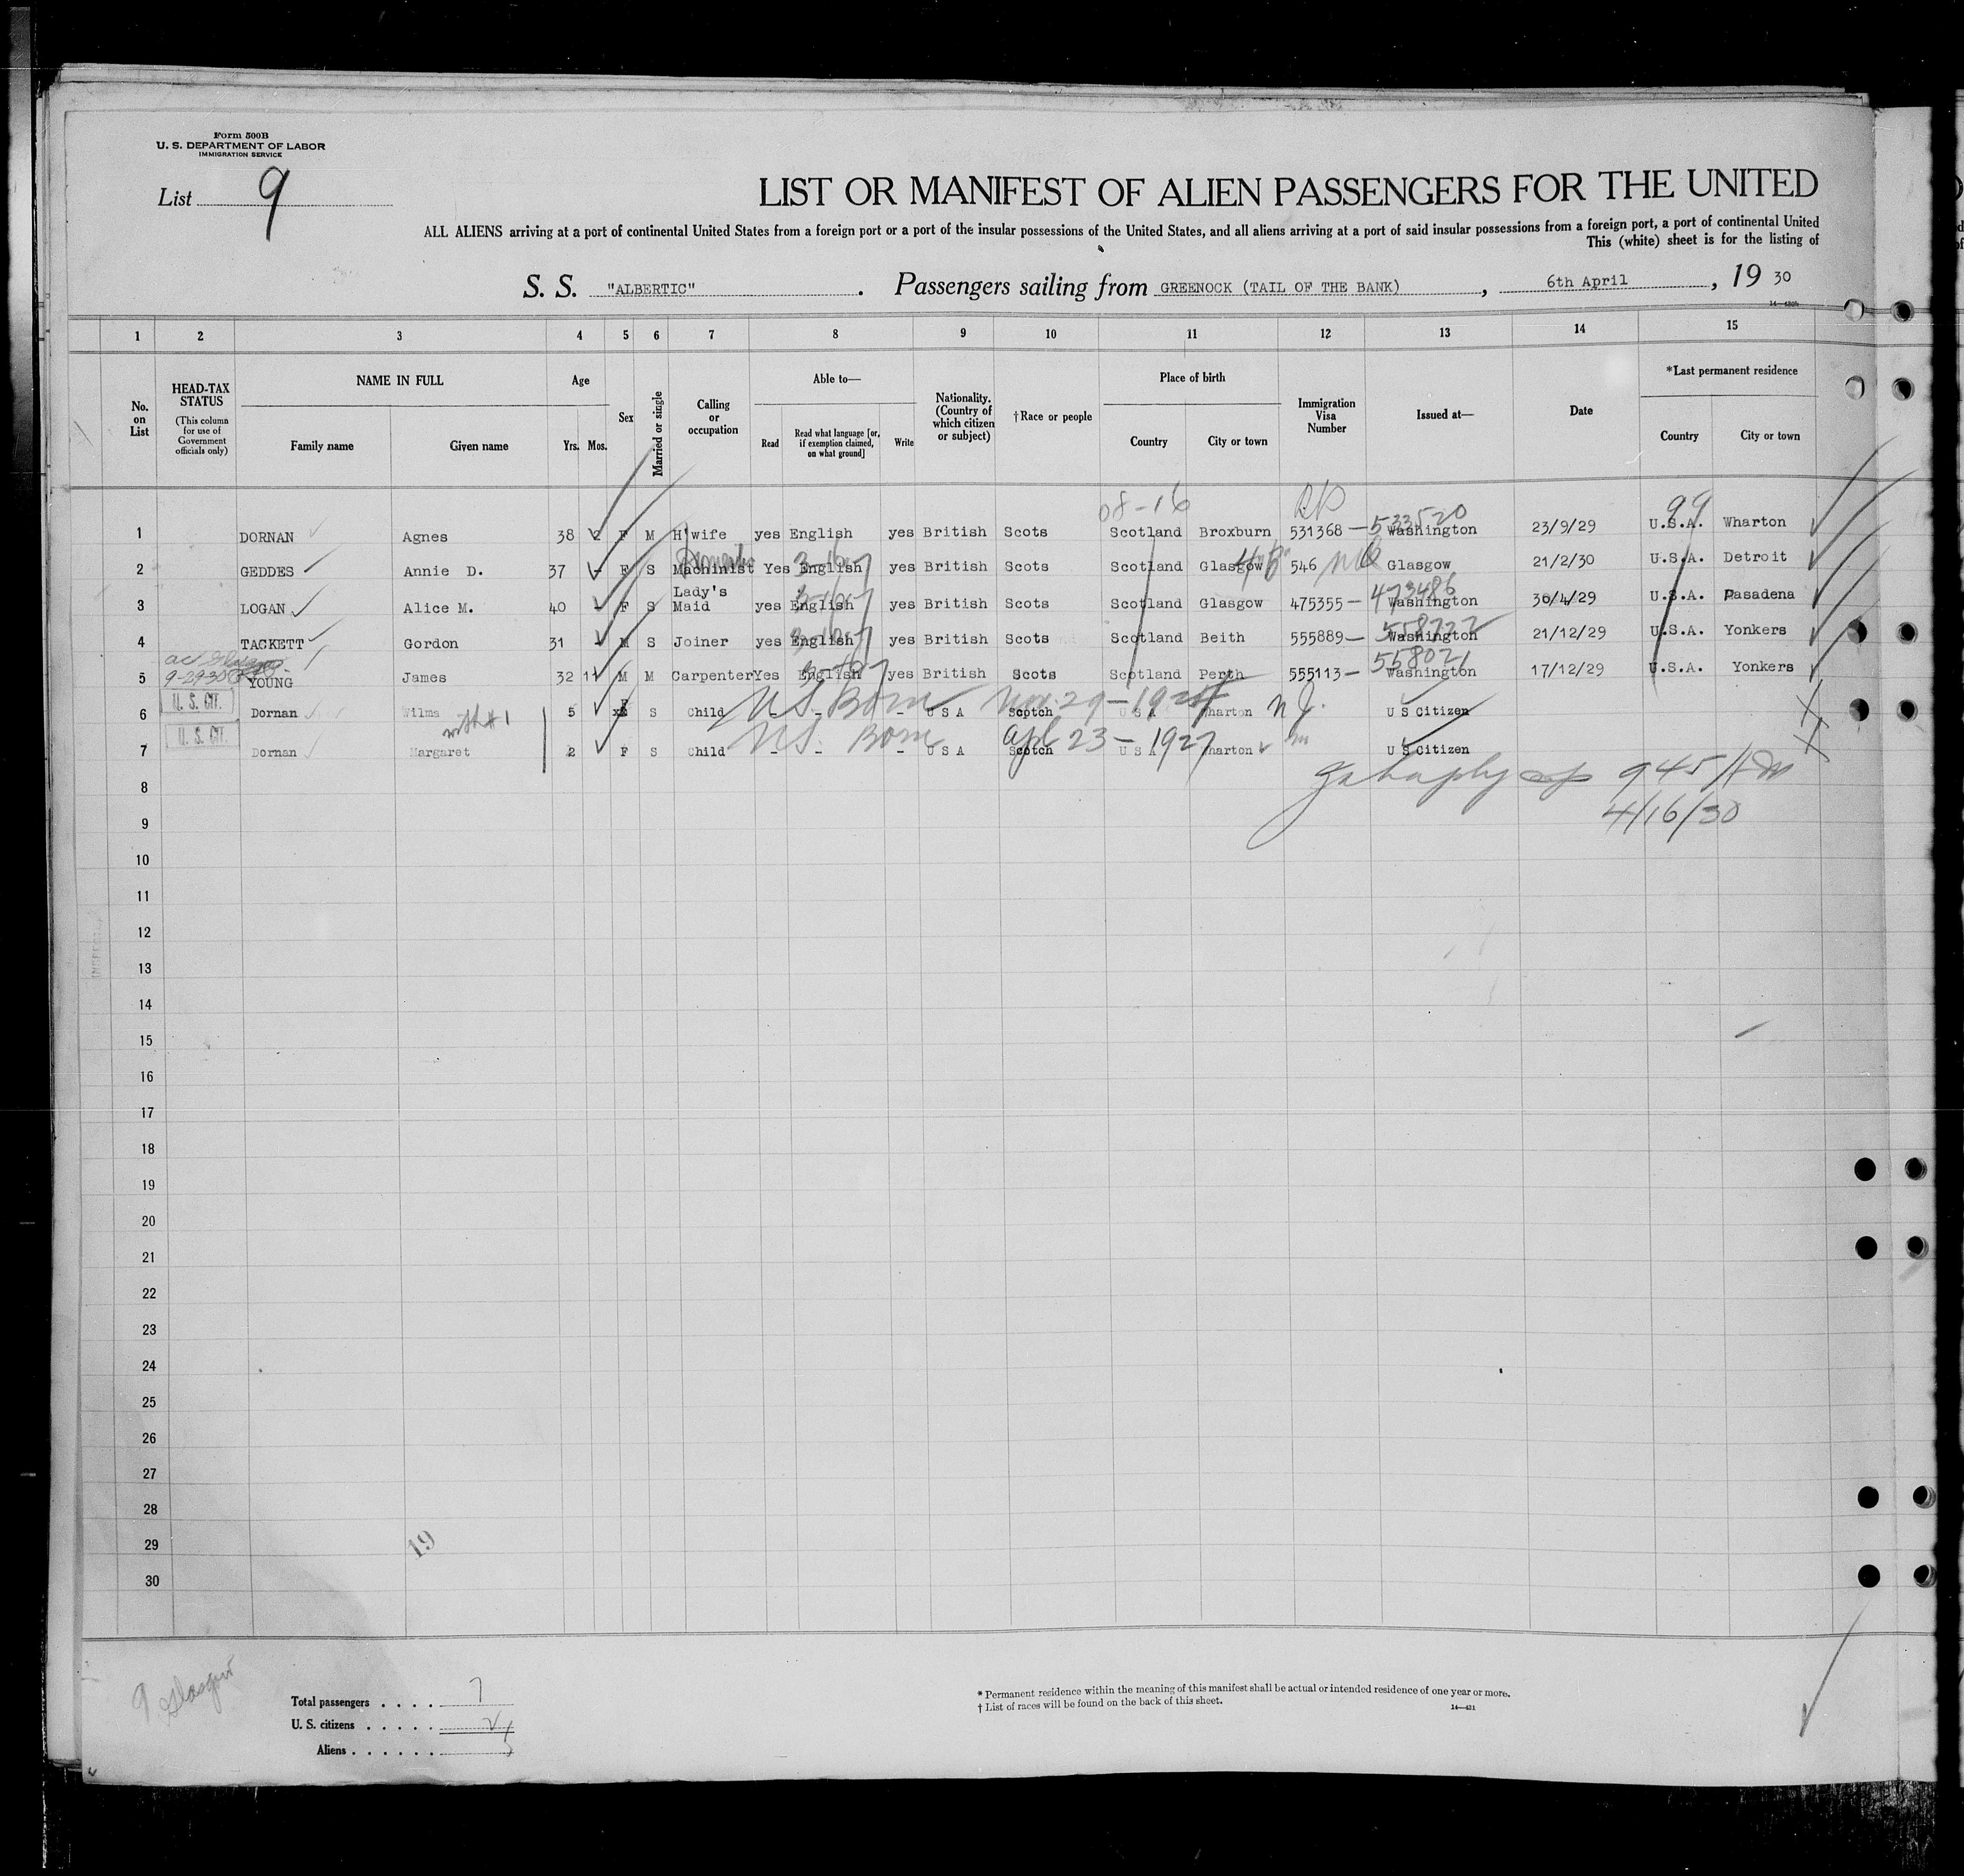 Form 500B
U. S. DEPARTMENT OF LABOR
IMMIGRATION SERVICE
List 9
LIST OR MANIFEST OF ALIEN PASSENGERS FOR THE UNITED
ALL ALIENS arriving at a port of continental United States from a foreign port or a port of the insular possessions of the United States, and all aliens arriving at a port of said insular possessions from a foreign port, a port of continental United
This (white) sheet is for the listing of
S. S. "ALBERTIC" . Passengers sailing from GREENOCK (TAIL OF THE BANK) , 6th April , 19 30
1 2 3 4 5 6 7 8 9 10 11 12 13 14 15
No. on List
HEAD-TAX STATUS
(This column for use of Government officials only)
NAME IN FULL
Family name Given name
Age
Yrs. Mos.
Sex
Married or single
Calling or occupation
Able to—
Read
Read what language [or, if exemption claimed, on what ground]
Write
Nationality. (Country of which citizen or subject)
†Race or people
Place of birth
Country City or town
Immigration Visa Number
Issued at—
Date
*Last permanent residence
Country City or town
08-16 99
1 DORNAN Agnes 38 F M H'wife yes English yes British Scots Scotland Broxburn 531368 — 533520 Washington 23/9/29 U.S.A. Wharton
2 GEDDES Annie D. 37 - F S Machinist Yes English yes British Scots Scotland Glasgow 546 Glasgow 21/2/30 U.S.A. Detroit
3 LOGAN Alice M. 40 - F S Lady's Maid yes English yes British Scots Scotland Glasgow 475355 — 473486 Washington 30/4/29 U.S.A. Pasadena
4 TACKETT Gordon 31 M S Joiner yes English yes British Scots Scotland Beith 555889 — Washington 21/12/29 U.S.A. Yonkers
5 YOUNG James 32 11 M M Carpenter Yes English yes British Scots Scotland Perth 555113 — 558021 Washington 17/12/29 U.S.A. Yonkers
6 U. S. CIT. Dornan Wilma 5 F S Child - - - U S A Scotch U S A Wharton N.J. U S Citizen
US. Born Nov. 29-1924
with #1
7 U. S. CIT. Dornan Margaret 2 F S Child - - - U S A Scotch U S A Wharton U S Citizen
US. Born Apl 23-1927
8
4/16/30
9
10
11
12
13
14
15
16
17
18
19
20
21
22
23
24
25
26
27
28
29
30
19
9 Glasgow
Total passengers . . . . 7
U. S. citizens . . . . . 2
Aliens . . . . . . 5
* Permanent residence within the meaning of this manifest shall be actual or intended residence of one year or more.
† List of races will be found on the back of this sheet.
14—431